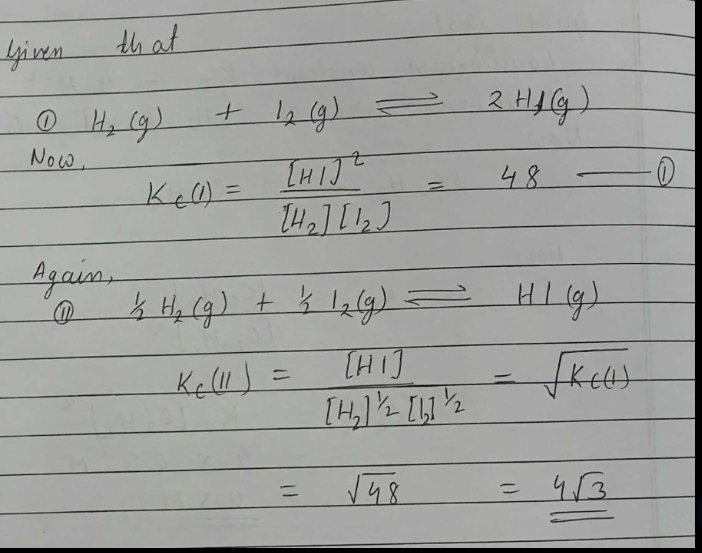 Given that
① H₂(g) + I₂(g) ⇌ 2HI(g)
Now,
Kc(I) = [HI]² / [H₂][I₂] = 48 —— ①
Again,
⑪ ½ H₂(g) + ½ I₂(g) ⇌ HI(g)
Kc(II) = [HI] / [H₂]^½ [I₂]^½ = √Kc(I)
= √48 = 4√3